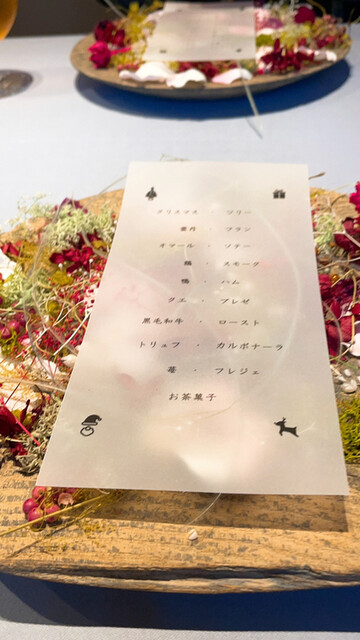 クリスマス ・ ツリー
・ フラン
オマール ・ ソテー
・ スモーク
・ ハム
クエ ・ ブレゼ
黒毛和牛 ・ ロースト
トリュフ ・ カルボナーラ
苺 ・ フレジェ
お茶菓子